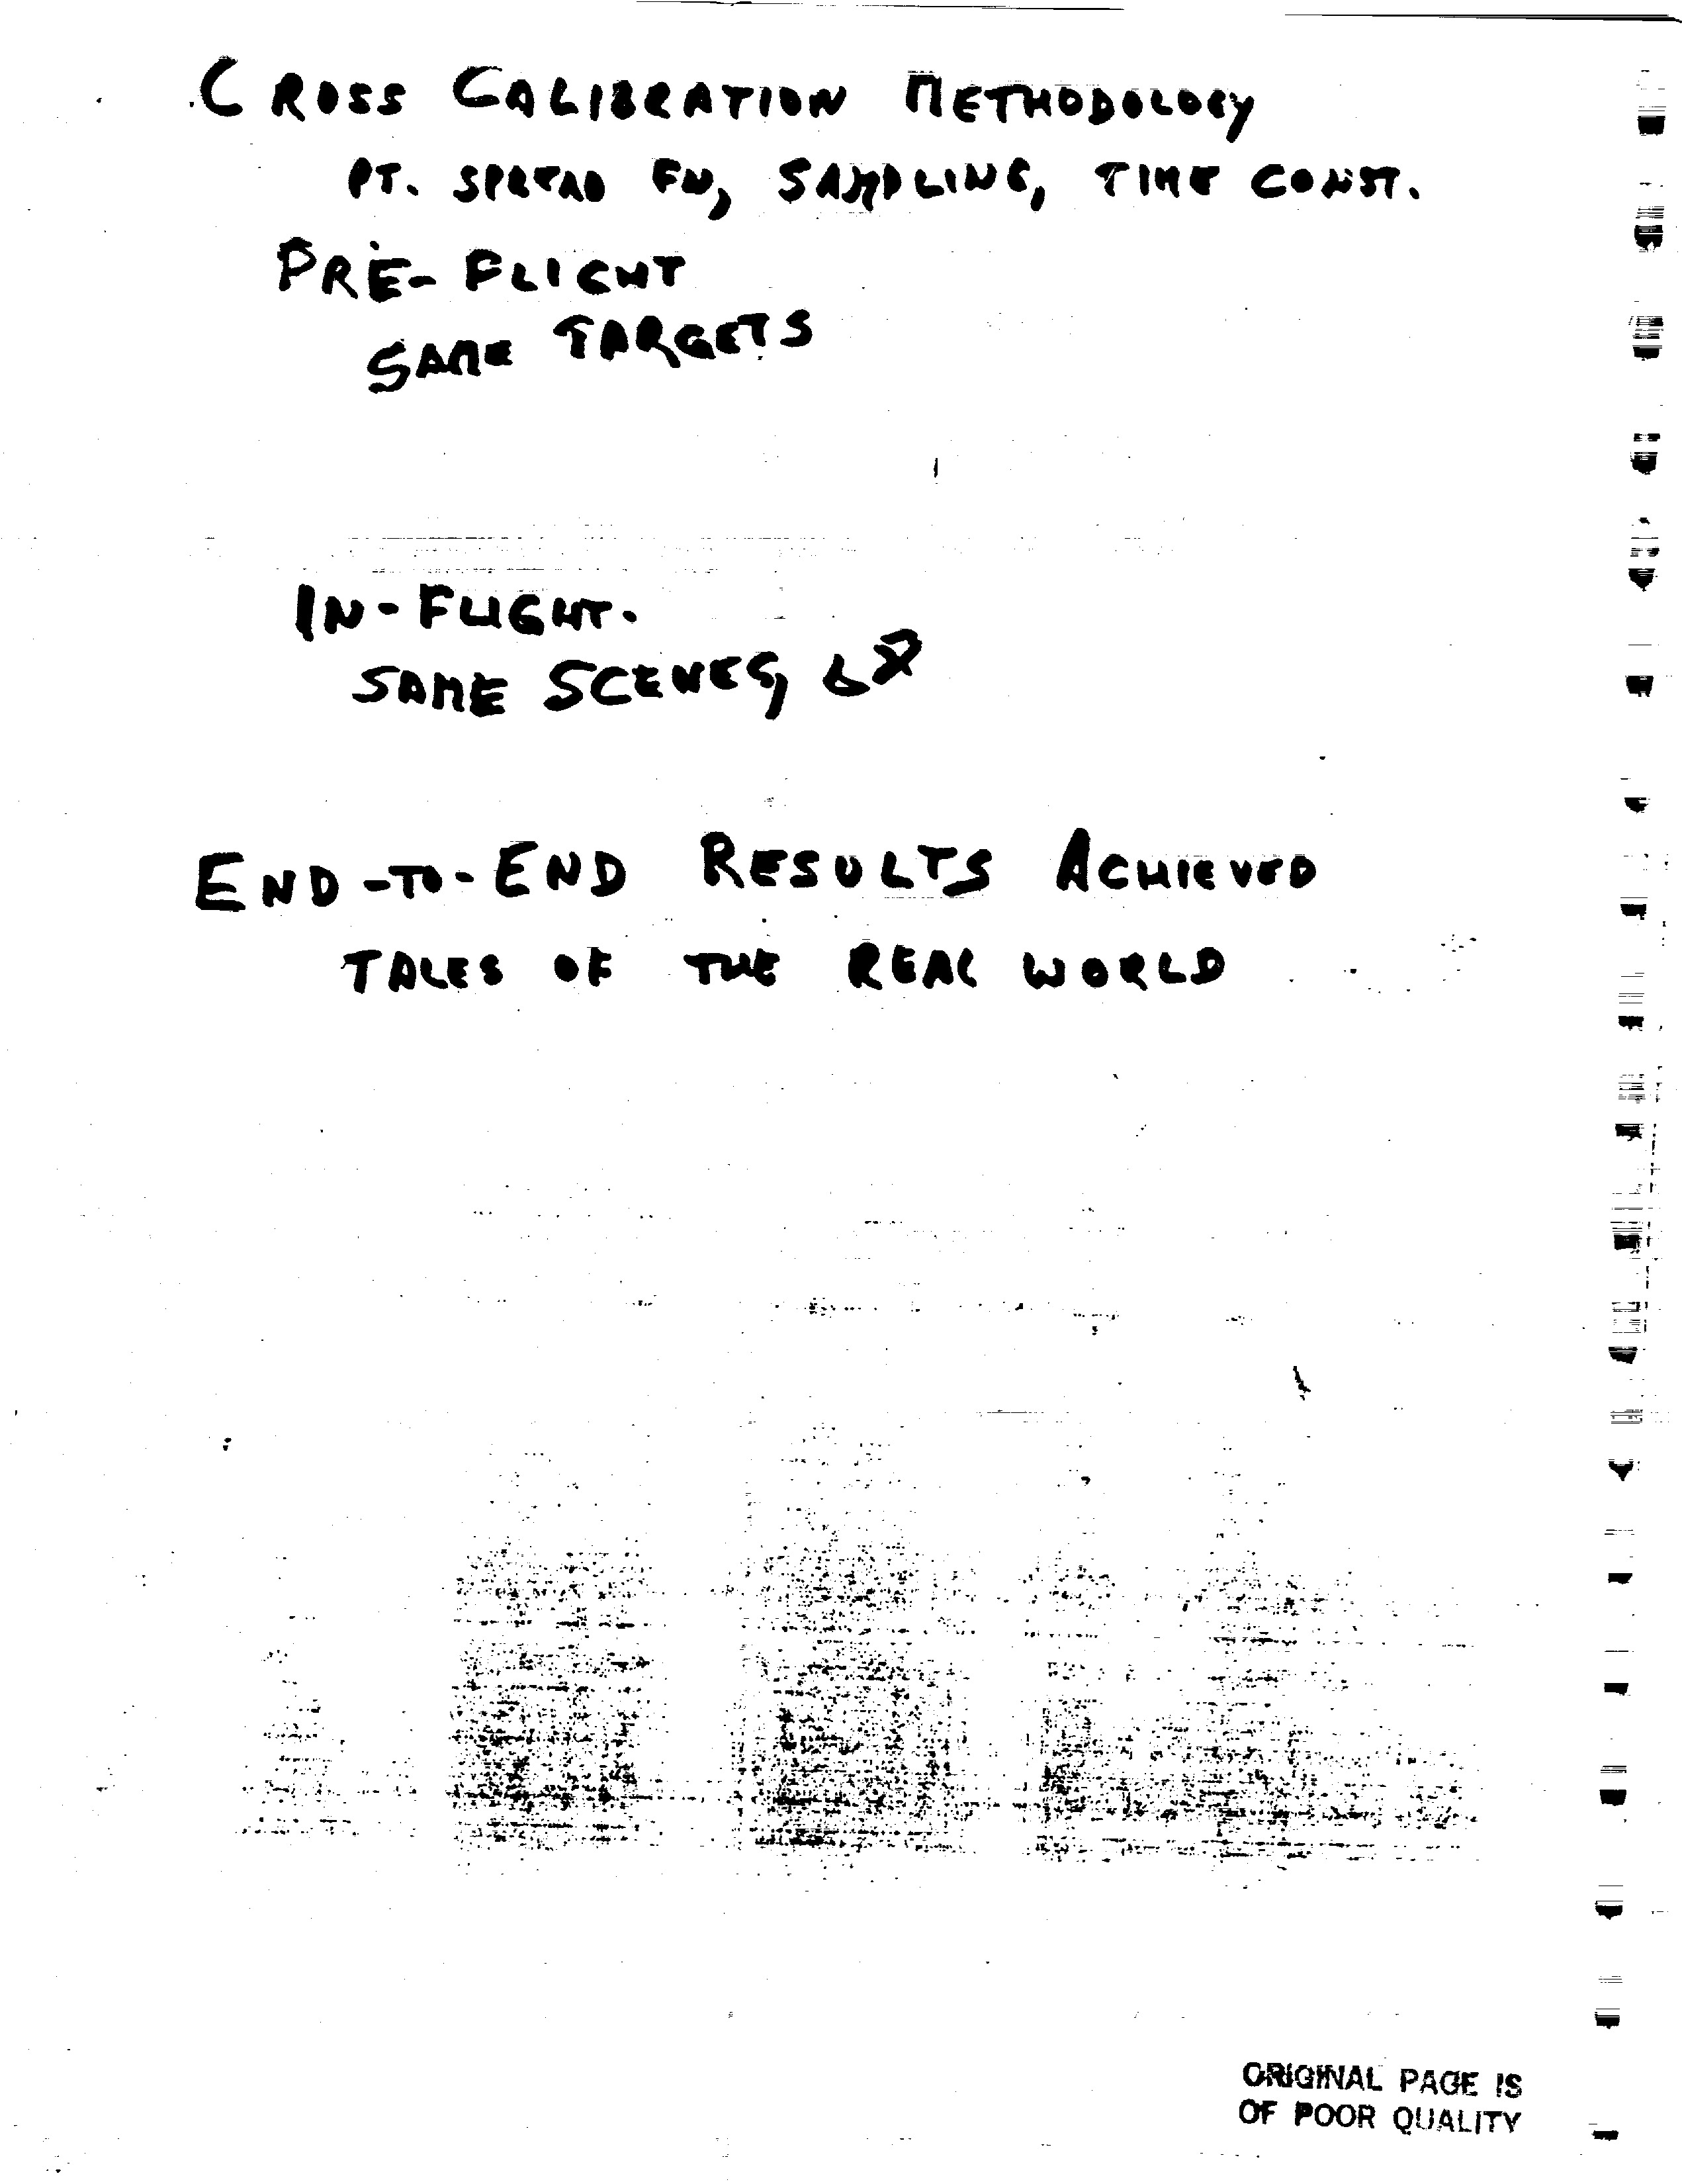 CROSS CALIBRATION METHODOLOGY
PT. SPREAD FN, SAMPLING, TIME CONST.
PRE-FLIGHT
SAME TARGETS
IN-FLIGHT.
SAME SCENES,
END-TO-END RESULTS ACHIEVED
TALES OF THE REAL WORLD
ORIGINAL PAGE IS
OF POOR QUALITY